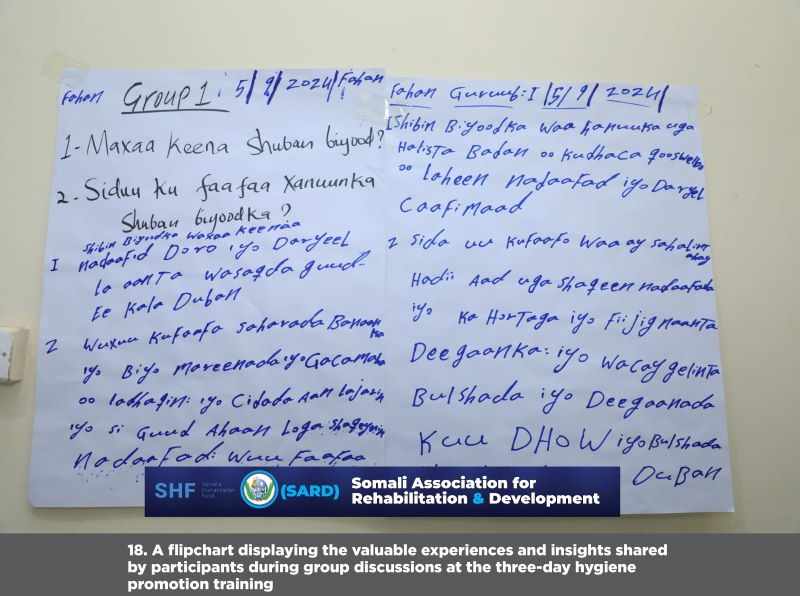 Fahan Group 1: 5/9/2024/ Fahan
1- Maxaa Keena Shuban biyood?
2. Siduu ku faafaa Xanuunka
Shuban biyoodka?
Shibin Biyoodka waxaa Keenaa
1 nadaafad Doro iyo Daryeel
la aanta wasaqda guud-
Ee Kala Duban
2 wuxuu Kufaafa saharada Banaanka
iyo Biyo mareenada iyo Gacamaha
oo ladhaqin: iyo Cidada Aan lajarin
iyo si Guud Ahaan Loga shaqeynin
Nadaafad: Wuu Faafaa
Fahan Guruub: I /5/9/ 2024/
1 Shibin Biyoodka waa Xanuuka uga
Halista Badan oo Kudhaca qooswelba
oo laheen nadaafad iyo Daryel
Caafimaad
2 sida uu Kufaafo Waa ay sahalint
ahay
Hadii Aad uga shaqeen nadaafada
iyo Ka Hortaga iyo Fiijignaanta
Deegaanka: iyo wacaygelinta
Bulshada iyo Deegaanada
Kuu DHOW iyo Bulshada
DuBan
SHF Somalia Humanitarian Fund
(SARD) Somali Association for
Rehabilitation & Development
18. A flipchart displaying the valuable experiences and insights shared
by participants during group discussions at the three-day hygiene
promotion training